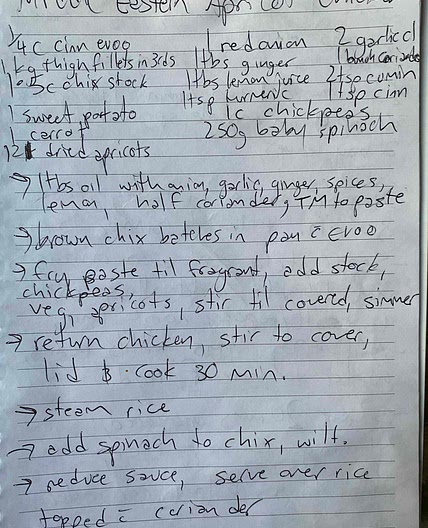 Middle Eastern Apricot Chicken
1/4 c cinn evoo 1 red onion 2 garlic cl
1 kg thigh fillets in 3rds 1 tbs ginger 1 bunch coriander
1.5c chix stock 1 tbs lemon juice 2 tsp cumin
1 tsp turmeric 1 tsp cinn
1 sweet potato 1c chickpeas
1 carrot 250g baby spinach
12 dried apricots
→ 1 tbs oil with onion, garlic, ginger, spices,
lemon, half coriander, TM to paste
→ brown chix batches in pan c̄ EVOO
→ fry paste til fragrant, add stock,
chickpeas,
veg, apricots, stir til covered, simmer
→ return chicken, stir to cover,
lid & cook 30 min.
→ steam rice
→ add spinach to chix, wilt.
→ reduce sauce, serve over rice
topped c̄ coriander